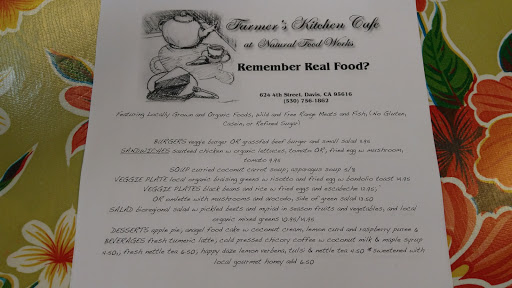 Farmer's Kitchen Cafe
at Natural Food Works
Remember Real Food?
624 4th Street, Davis, CA 95616
(530) 756-1862
Featuring Locally Grown and Organic Foods, Wild and Free Range Meats and Fish, (No Gluten,
Casein, or Refined Sugar)
BURGERS veggie burger OR grassfed beef burger and small salad 9.95
SANDWICHES sauteed chicken w organic lettuces, tomato OR, fried egg w mushroom,
tomato 9.95
SOUP curried coconut carrot soup, asparagus soup 5/8
VEGGIE PLATE local organic braising greens w risotto and fried egg w bonbolio toast 14.95
VEGGIE PLATES black beans and rice w fried eggs and escabeche 12.95,
OR omlette with mushrooms and avocado, side of green salad 13.50
SALAD bioregional salad w pickled beets and myriad in season fruits and vegetables, and local
organic mixed greens 10.95/14.95
DESSERTS apple pie, angel food cake w coconut cream, lemon curd and raspberry puree 8
BEVERAGES fresh turmeric latte, cold pressed chicory coffee w coconut milk & maple syrup
4.50, fresh nettle tea 6.50, happy daze lemon verbena, tulsi & nettle tea 4.50 *sweetened with
local gourmet honey add 6.50